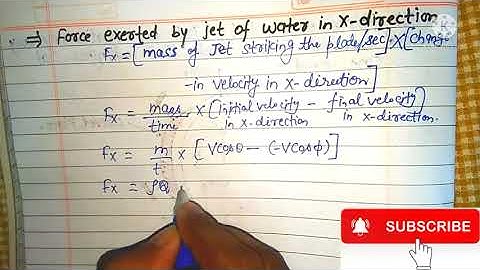 ⇒ Force exerted by jet of water in X-direction
Fx = [mass of Jet striking the plate/sec] × [chan
-in velocity in x-direction]
Fx = mass/time × (initial velocity in x-direction - final velocity in x-direction)
Fx = m/t × [Vcosθ - (-Vcosφ)]
Fx = ρQ
SUBSCRIBE